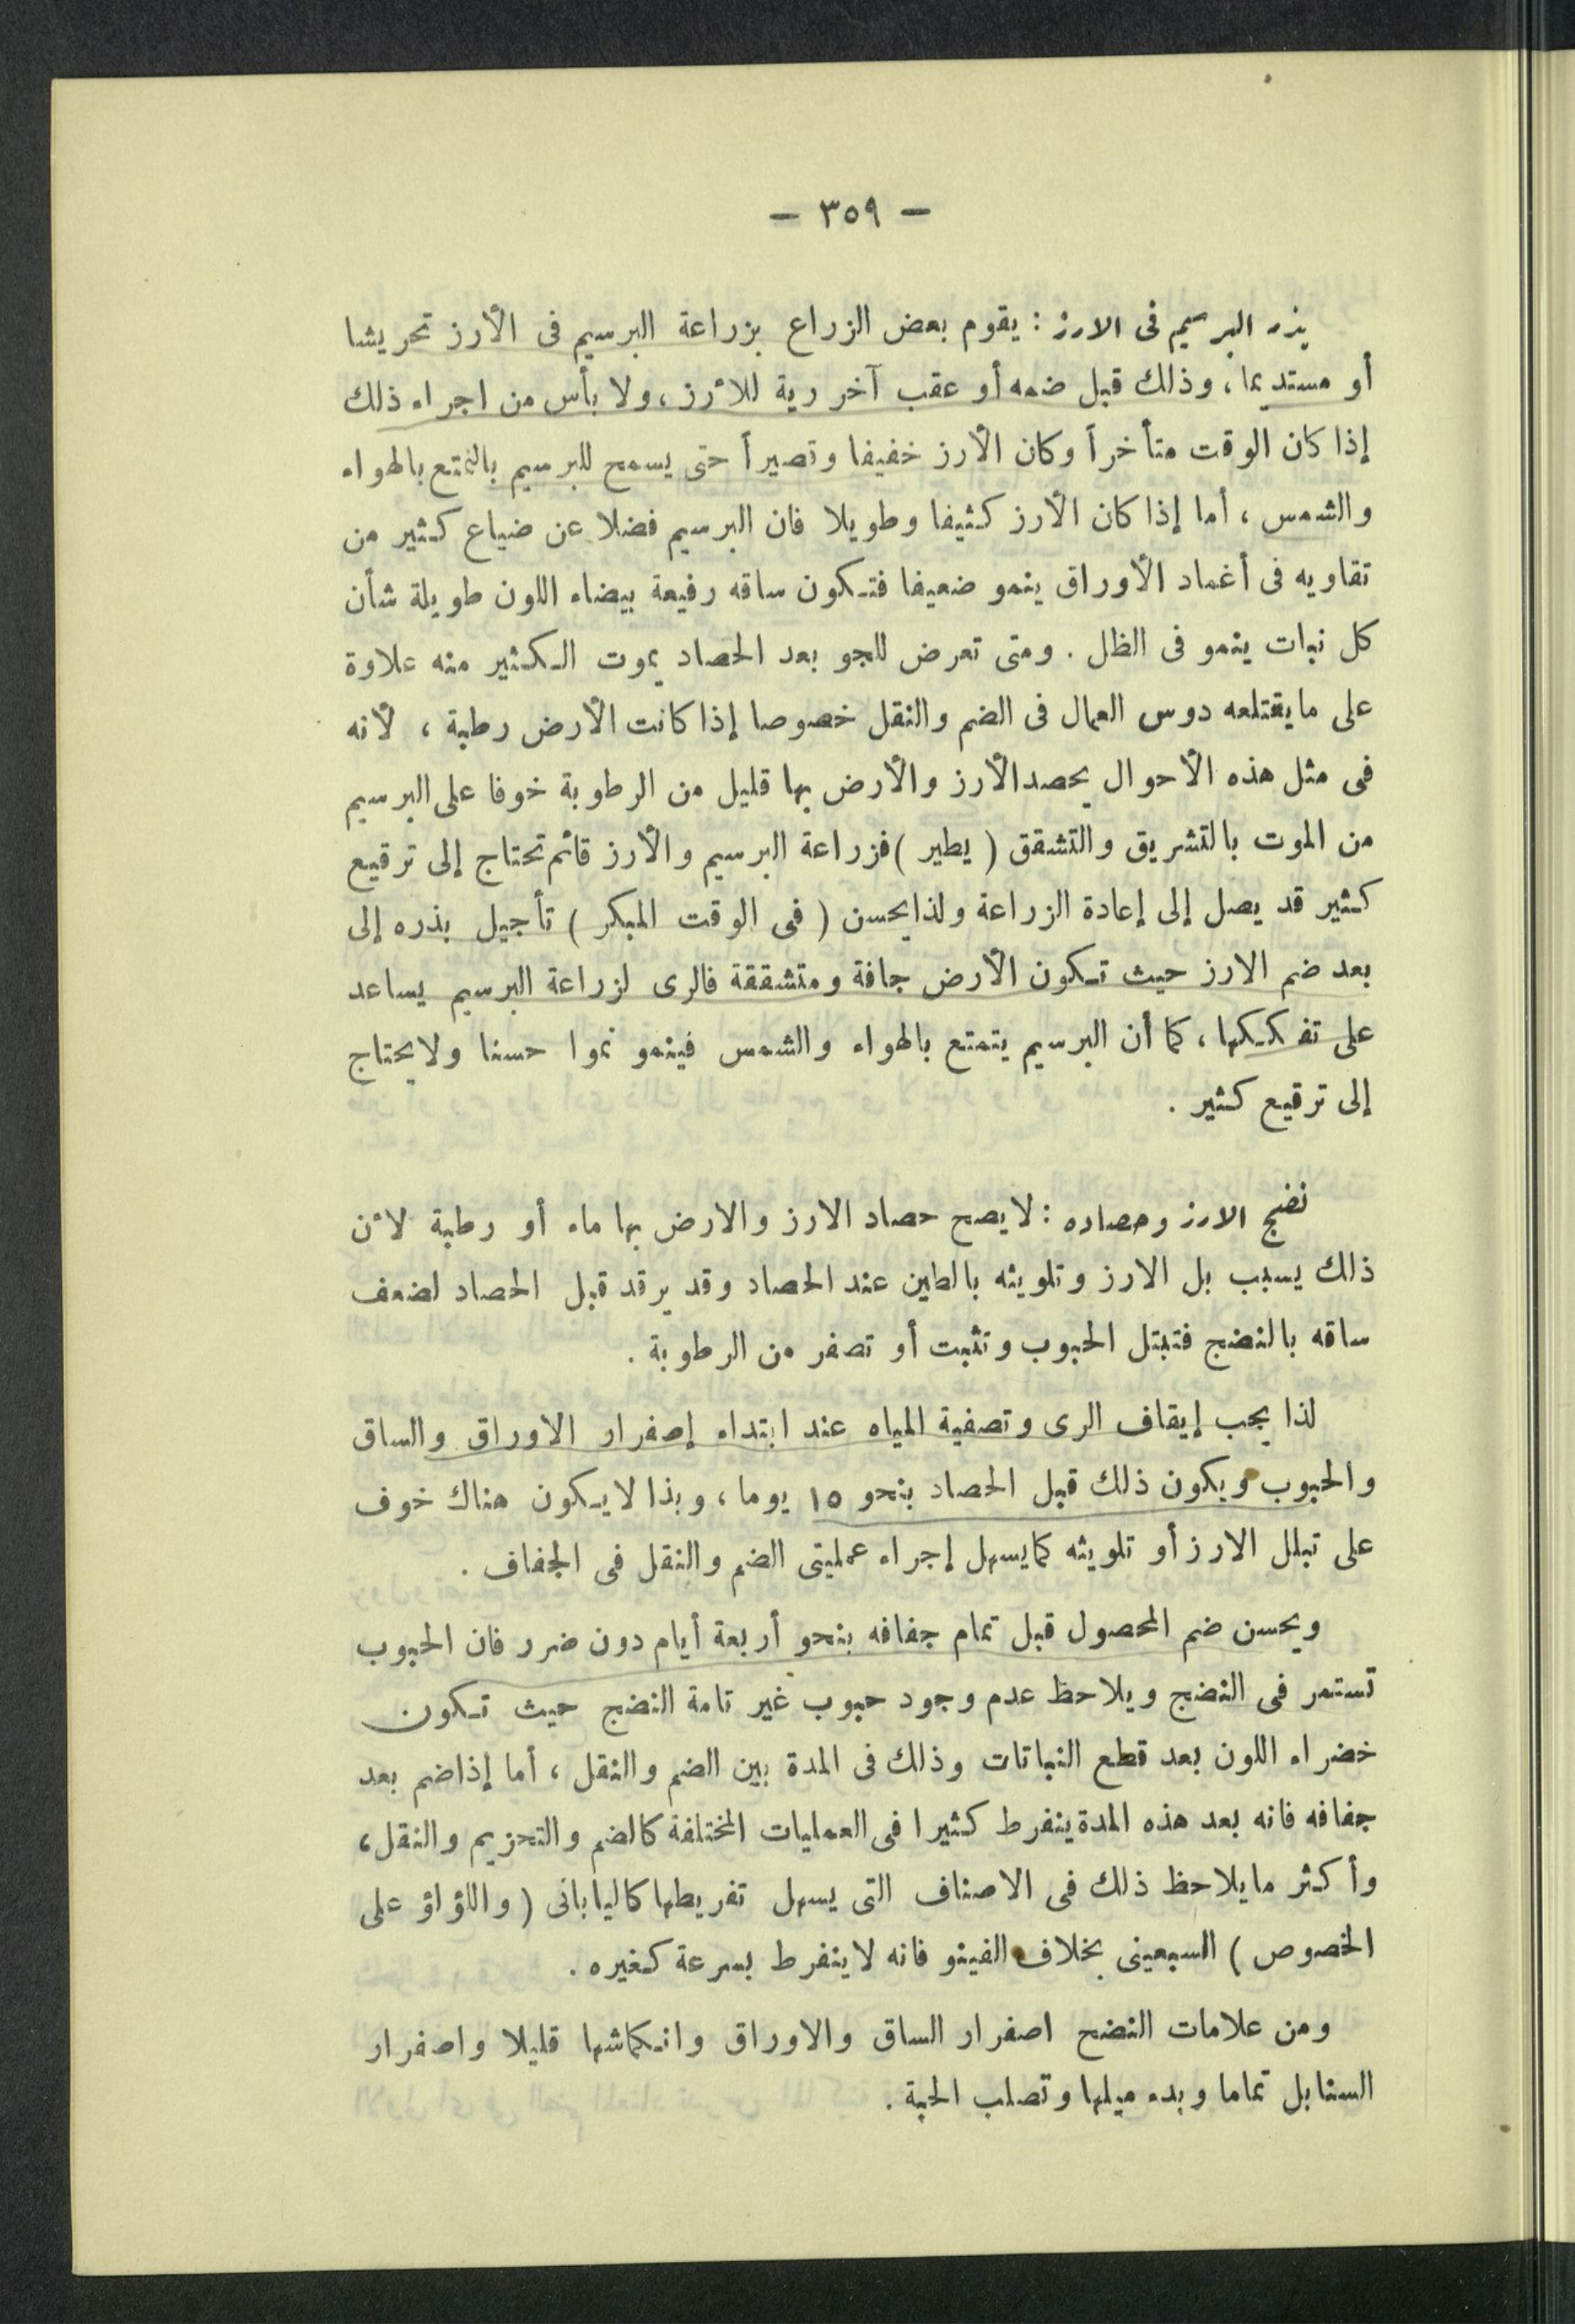 — ٣٥٩ —
بذر البرسيم فى الارز : يقوم بعض الزراع بزراعة البرسيم فى الأرز تحريشا
أو مستديما ، وذلك قبل ضمه أو عقب آخر رية للأرز ، ولا بأس من اجراء ذلك
إذا كان الوقت متأخراً وكان الأرز خفيفا وقصيراً حتى يسمح للبرسيم بالتمتع بالهواء
والشمس ، أما إذا كان الأرز كثيفا وطويلا فان البرسيم فضلا عن ضياع كثير من
تقاويه فى أغماد الأوراق ينمو ضعيفا فتكون ساقه رفيعة بيضاء اللون طويلة شأن
كل نبات ينمو فى الظل . ومتى تعرض للجو بعد الحصاد يموت الكثير منه علاوة
على مايقتلعه دوس العمال فى الضم والنقل خصوصا إذا كانت الأرض رطبة ، لأنه
فى مثل هذه الأحوال يحصد الأرز والأرض بها قليل من الرطوبة خوفا على البرسيم
من الموت بالتشريق والتشقق ( يطير ) فزراعة البرسيم والأرز قائم تحتاج إلى ترقيع
كثير قد يصل إلى إعادة الزراعة ولذا يحسن ( فى الوقت المبكر ) تأجيل بذره إلى
بعد ضم الارز حيث تكون الأرض جافة ومتشققة فالرى لزراعة البرسيم يساعد
على تفككها ، كما أن البرسيم يتمتع بالهواء والشمس فينمو نموا حسنا ولا يحتاج
إلى ترقيع كثير .
نضج الارز وحصاده : لا يصح حصاد الارز والارض بها ماء أو رطبة لأن
ذلك يسبب بل الارز وتلويثه بالطين عند الحصاد وقد يرقد قبل الحصاد لضعف
ساقه بالنضج فتبتل الحبوب وتثبت أو تصفر من الرطوبة .
لذا يجب إيقاف الرى وتصفية المياه عند ابتداء إصفرار الاوراق والساق
والحبوب ويكون ذلك قبل الحصاد بنحو ١٥ يوما ، وبذا لا يكون هناك خوف
على تبلل الارز أو تلويثه كما يسهل إجراء عمليتى الضم والنقل فى الجفاف .
ويحسن ضم المحصول قبل تمام جفافه بنحو أربعة أيام دون ضرر فان الحبوب
تستمر فى النضج ويلاحظ عدم وجود حبوب غير تامة النضج حيث تكون
خضراء اللون بعد قطع النباتات وذلك فى المدة بين الضم والنقل ، أما إذا ضم بعد
جفافه فانه بعد هذه المدة ينفرط كثيرا فى العمليات المختلفة كالضم والتحزيم والنقل ،
وأكثر مايلاحظ ذلك فى الاصناف التى يسهل تفريطها كاليابانى ( واللؤلؤ على
الخصوص ) السبعينى بخلاف الفينو فانه لا ينفرط بسرعة كغيره .
ومن علامات النضج اصفرار الساق والاوراق وانكماشها قليلا واصفرار
السنابل تماما وبدء ميلها وتصلب الحبة .